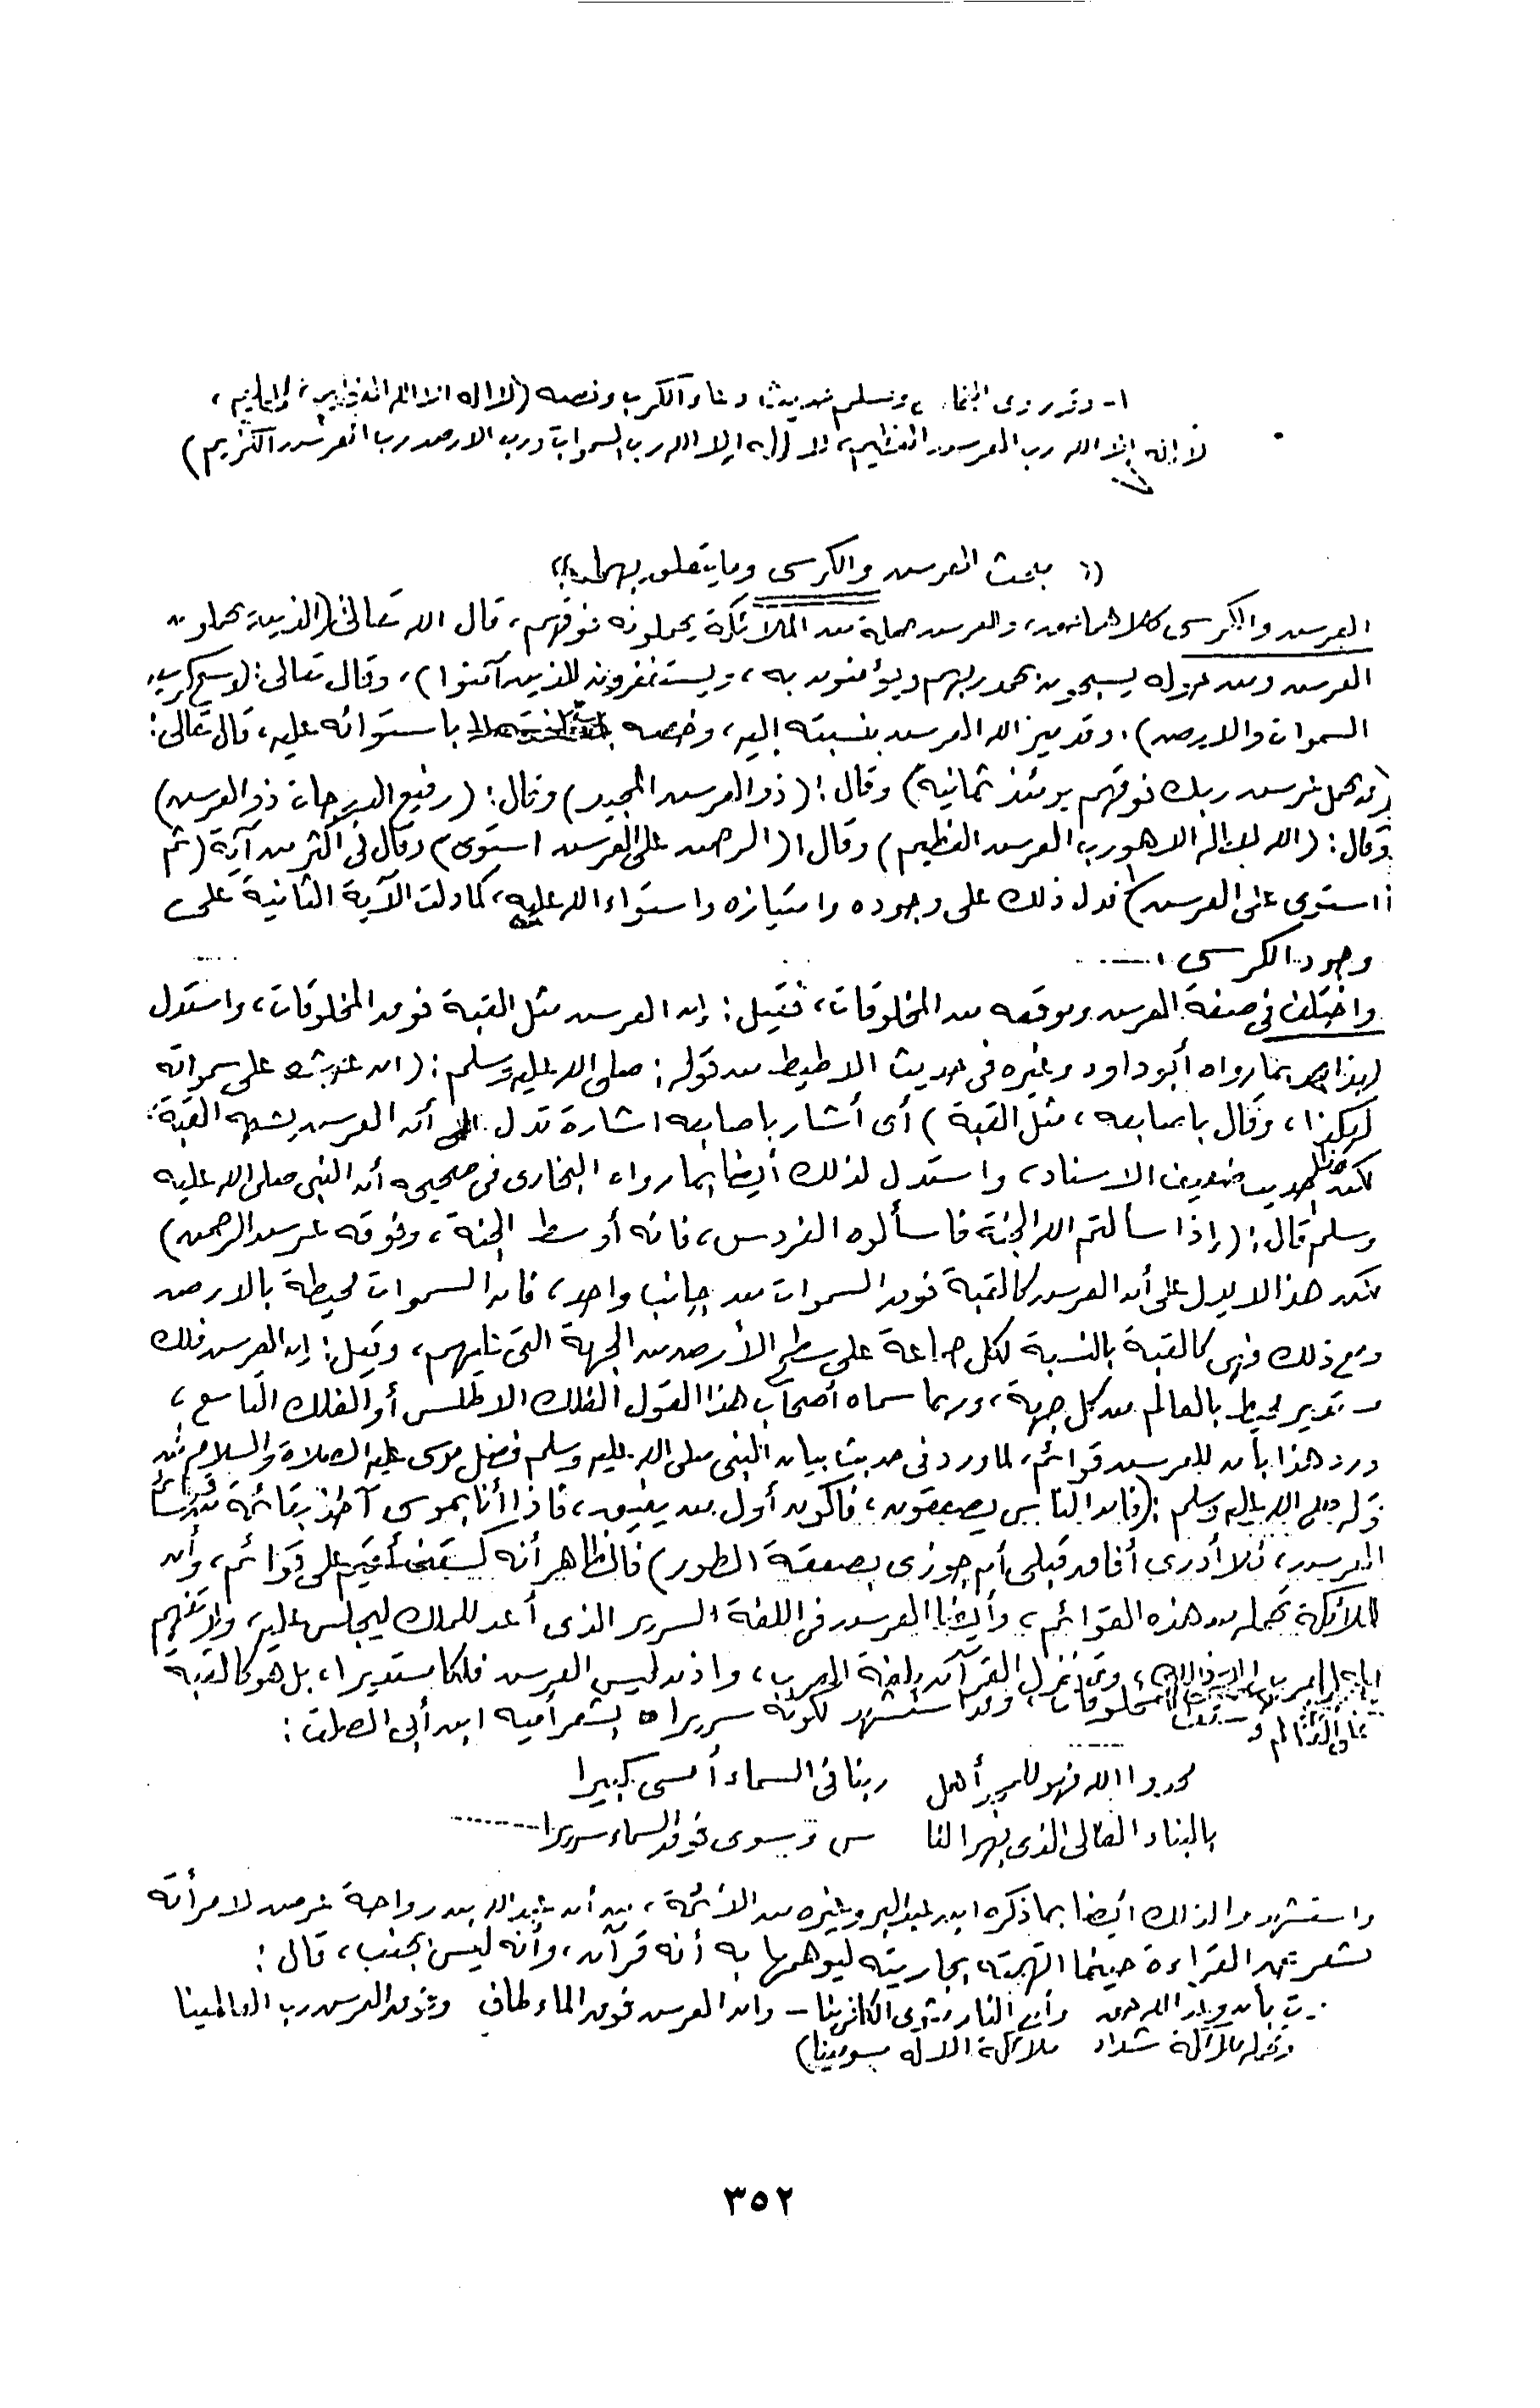 ١- وقد روى البخاري ومسلم حديث دعاء الكرب ونصه (لا اله الا الله العظيم الحليم،
لا إله إلا الله رب العرش العظيم، لا إله إلا الله رب السموات ورب الارض رب العرش الكريم)
(( مبحث العرش والكرسى وما يتعلق بهما ))
العرش والكرسى كلاهما حق، وللعرش حملة من الملائكة يحملونه فوقهم، قال الله تعالى: (الذين يحملون
العرش ومن حوله يسبحون بحمد ربهم ويؤمنون به، ويستغفرون للذين آمنوا)، وقال تعالى: (وسع كرسيه
السموات والارض)، وقد ميز الله العرش بنسبته إليه، وخصه باستوائه عليه، قال تعالى:
(ويحمل عرش ربك فوقهم يومئذ ثمانية) وقال: (ذو العرش المجيد) وقال: (رفيع الدرجات ذو العرش)
وقال: (الله لا إله الا هو رب العرش العظيم) وقال: (الرحمن على العرش استوى) وقال فى أكثر من آية (ثم
استوى على العرش) فدل ذلك على وجوده وامتيازه واستواء الله عليه، كما دلت الآية الثانية على
وجود الكرسى .
واختلف فى صفة العرش وموقعه من المخلوقات، فقيل: إن العرش مثل القبة فوق المخلوقات، واستدل
لهذا بما رواه أبو داود وغيره فى حديث الاطيط من قوله: صلى الله عليه وسلم: (ان عرشه على سمواته
لهكذا، وقال باصابعه، مثل القبة) أى أشار باصابعه اشارة تدل على أن العرش يشبه القبة،
لكن هذا الحديث ضعيف الاسناد، واستدل لذلك أيضا بما رواه البخارى فى صحيحه أن النبى صلى الله عليه
وسلم قال: (إذا سألتم الله الجنة فاسألوه الفردوس، فانه أوسط الجنة، وفوقه عرش الرحمن)
لكن هذا لا يدل على أن العرش كالقبة فوق السموات من جانب واحد، فان السموات محيطة بالارض
ومع ذلك فهى كالقبة بالنسبة لكل جماعة على سطح الأرض من الجهة التى تليهم، وقيل: إن العرش فلك
مستدير محيط بالعالم من كل جهة، وربما سماه أصحاب هذا القول الفلك الاطلس أو الفلك التاسع،
ورد هذا بأن للعرش قوائم، لما ورد فى حديث بيان النبى صلى الله عليه وسلم فضل موسى عليه الصلاة والسلام من
قوله صلى الله عليه وسلم: (فان الناس يصعقون، فأكون أول من يفيق، فاذا أنا بموسى آخذ بقائمة من قوائم
العرش، فلا أدرى أفاق قبلى أم جوزى بصعقة الطور) فالظاهر أنه كسقف أقيم على قوائم، وأن
الملائكة تحمله من هذه القوائم، وأيضا العرش فى اللغة السرير الذى أعد للملك ليجلس عليه، ولا تفهم
العرب الا ذلك، وقد نزل القرآن بلغة العرب، واذن ليس العرش فلكا مستديرا، بل هو كالقبة
على العالم وسقف المخلوقات، وقد استشهد لكونه سريرا بشعر أمية ابن أبى الصلت:
مجدوا الله فهو للمجد أهل ربنا فى السماء أمسى كبيرا
بالبناء العالى الذى بهر النا س وسوى فوق السماء سريرا
واستشهدوا لذلك أيضا بما ذكره ابن عبد البر وغيره من الأئمة، من أن عبد الله بن رواحة عرض لامرأته
بشعر عن القراءة حينما اتهمته بجاريته ليوهمها به أنه قرآن، وأنه ليس بجنب، قال:
شهدت بأن وعد الله حق وأن النار مثوى الكافرينا - وان العرش فوق الماء طاف وفوق العرش رب العالمينا
وتحمله ملائكة شداد ملائكة الاله مسومينا)
٣٥٢